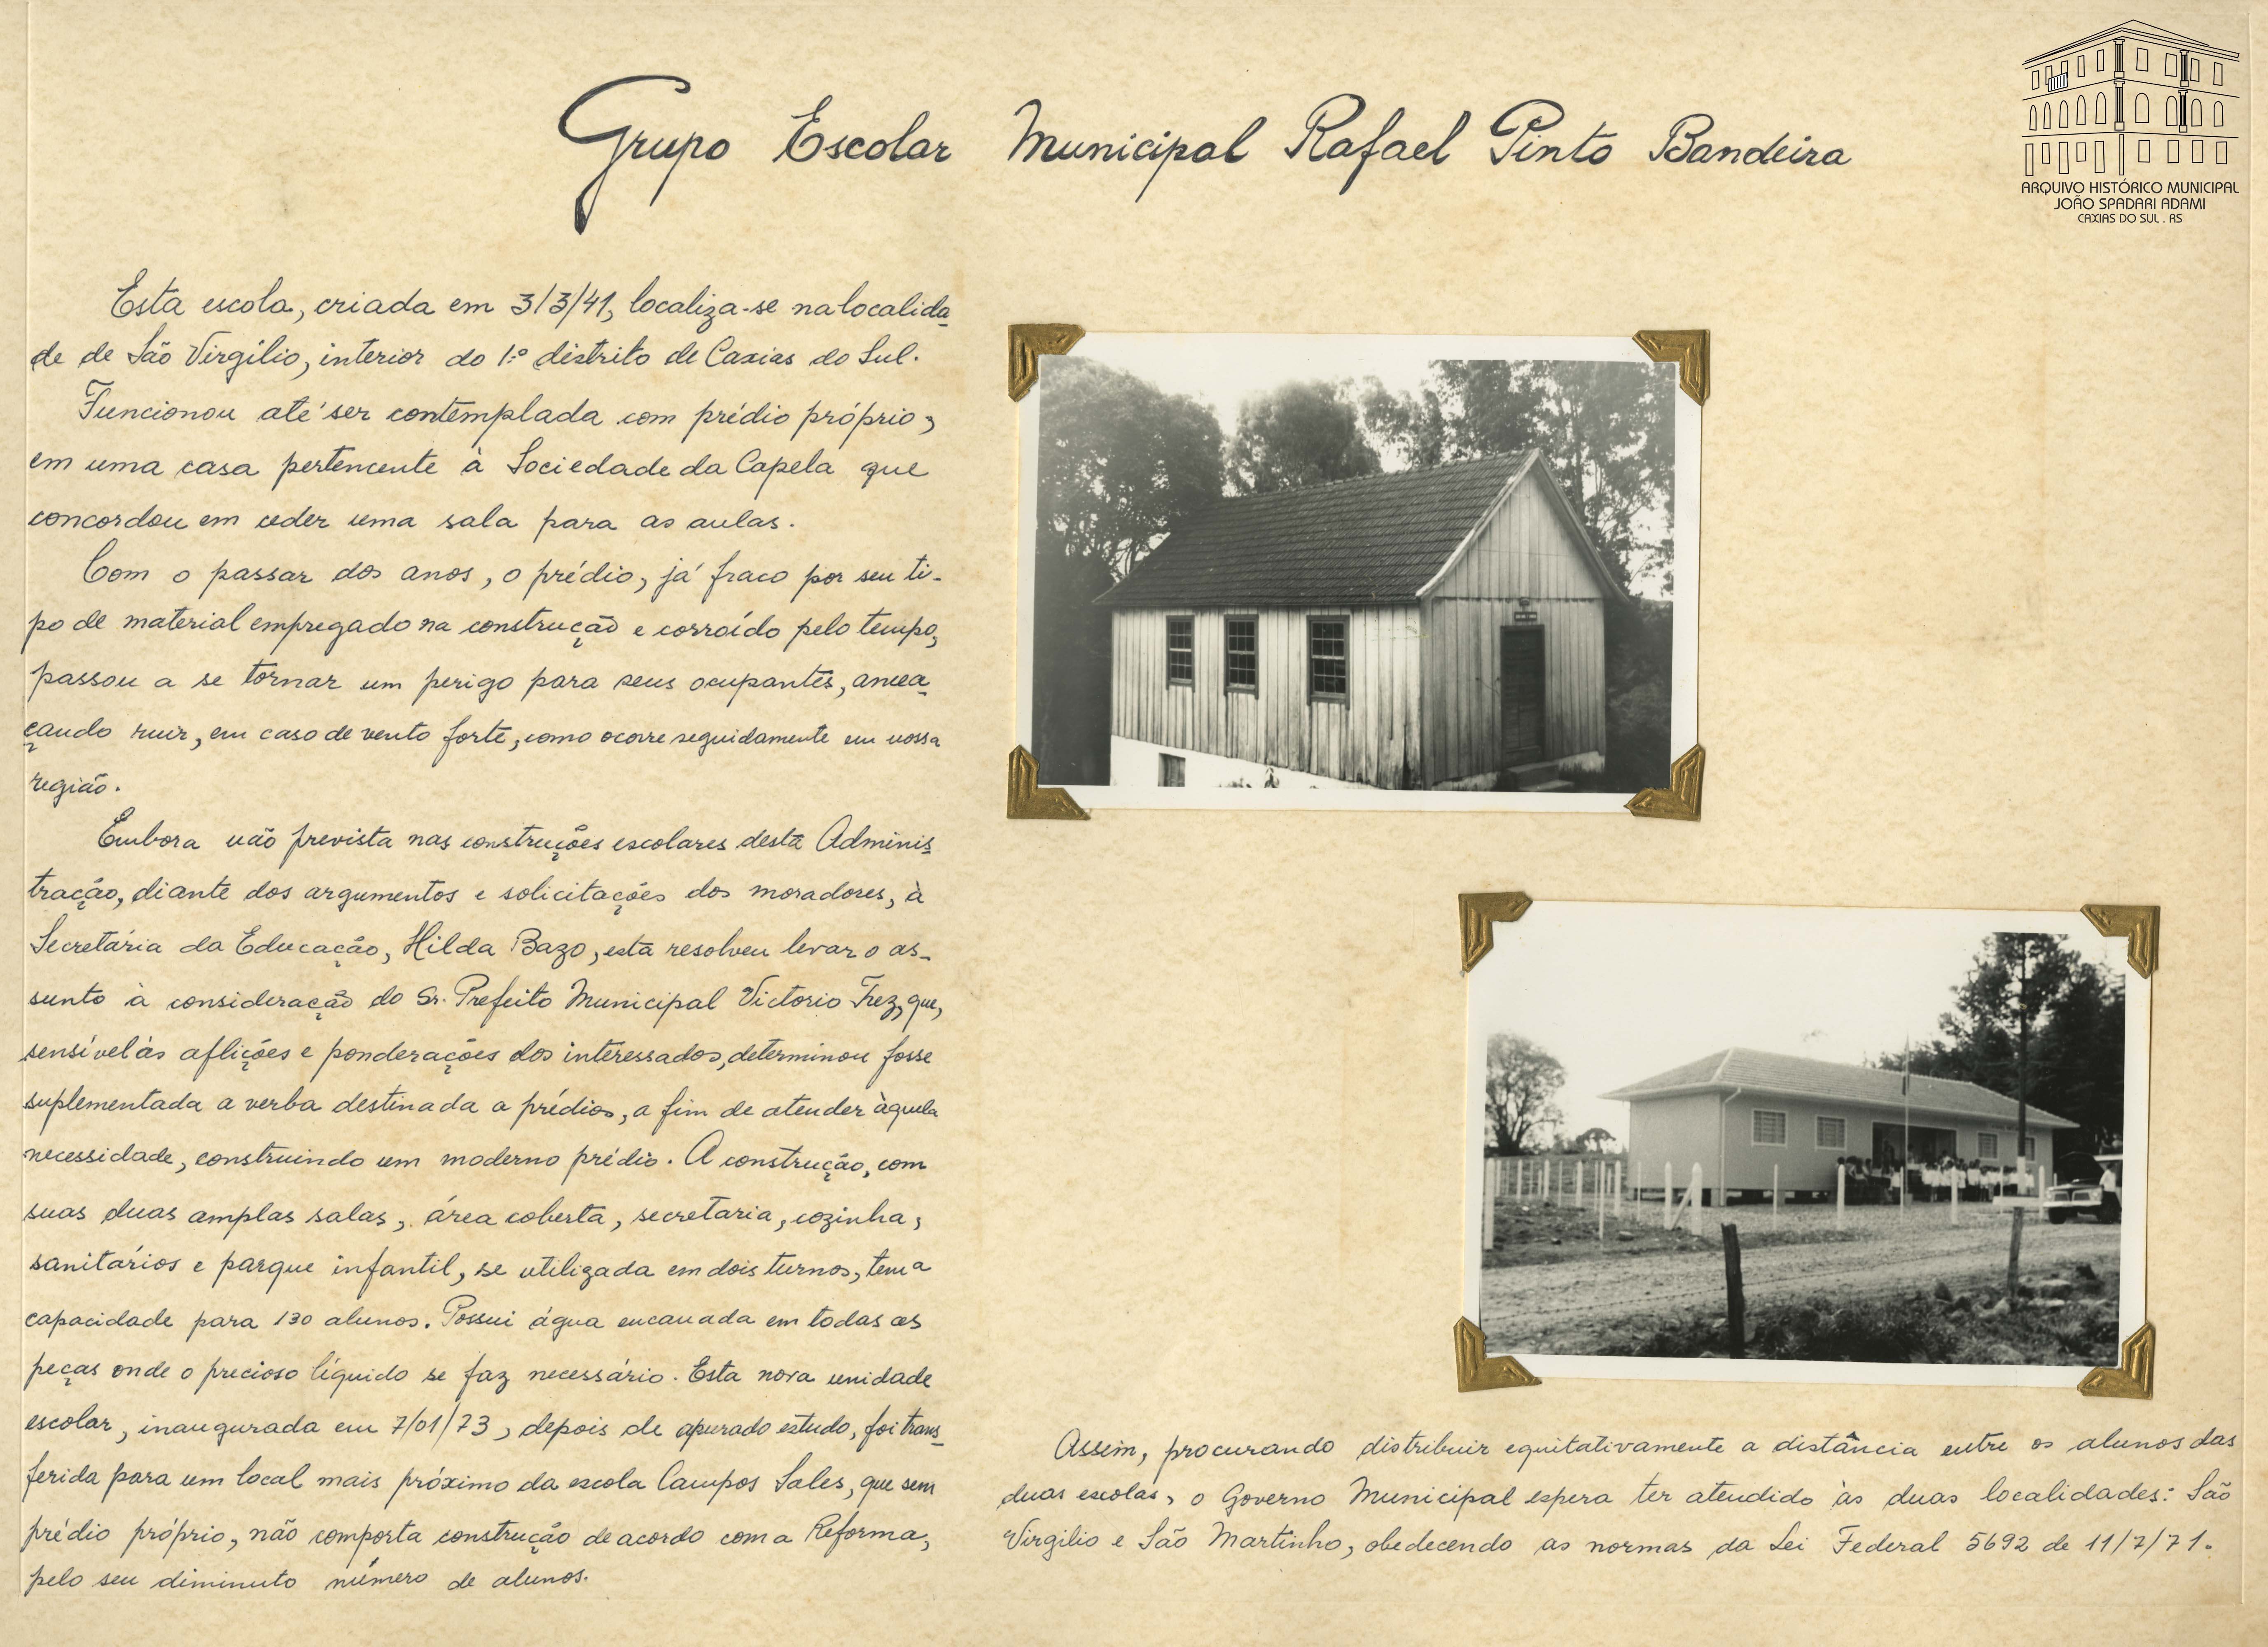 Grupo Escolar Municipal Rafael Pinto Bandeira
ARQUIVO HISTÓRICO MUNICIPAL
JOÃO SPADARI ADAMI
CAXIAS DO SUL . RS
Esta escola, criada em 3/3/41, localiza-se na localida-
de de São Virgílio, interior do 1º distrito de Caxias do Sul.
Funcionou até ser contemplada com prédio próprio,
em uma casa pertencente à Sociedade da Capela que
concordou em ceder uma sala para as aulas.
Com o passar dos anos, o prédio, já fraco por seu ti-
po de material empregado na construção e corroído pelo tempo,
passou a se tornar um perigo para seus ocupantes, amea-
çando ruir, em caso de vento forte, como ocorre seguidamente em nossa
região.
Embora não prevista nas construções escolares desta Adminis-
tração, diante dos argumentos e solicitações dos moradores, à
Secretária da Educação, Hilda Bazo, esta resolveu levar o as-
sunto à consideração do Sr. Prefeito Municipal Victorio Trez, que,
sensível às aflições e ponderações dos interessados, determinou fosse
suplementada a verba destinada a prédios, a fim de atender àquela
necessidade, construindo um moderno prédio. A construção, com
suas duas amplas salas, área coberta, secretaria, cozinha,
sanitários e parque infantil, se utilizada em dois turnos, tem a
capacidade para 130 alunos. Possui água encanada em todas as
peças onde o precioso líquido se faz necessário. Esta nova unidade
escolar, inaugurada em 7/01/73, depois de apurado estudo, foi trans-
ferida para um local mais próximo da escola Campos Sales, que sem
prédio próprio, não comporta construção de acordo com a Reforma,
pelo seu diminuto número de alunos.
Assim, procurando distribuir equitativamente a distância entre os alunos das
duas escolas, o Governo Municipal espera ter atendido às duas localidades: São
Virgílio e São Martinho, obedecendo as normas da Lei Federal 5692 de 11/7/71.